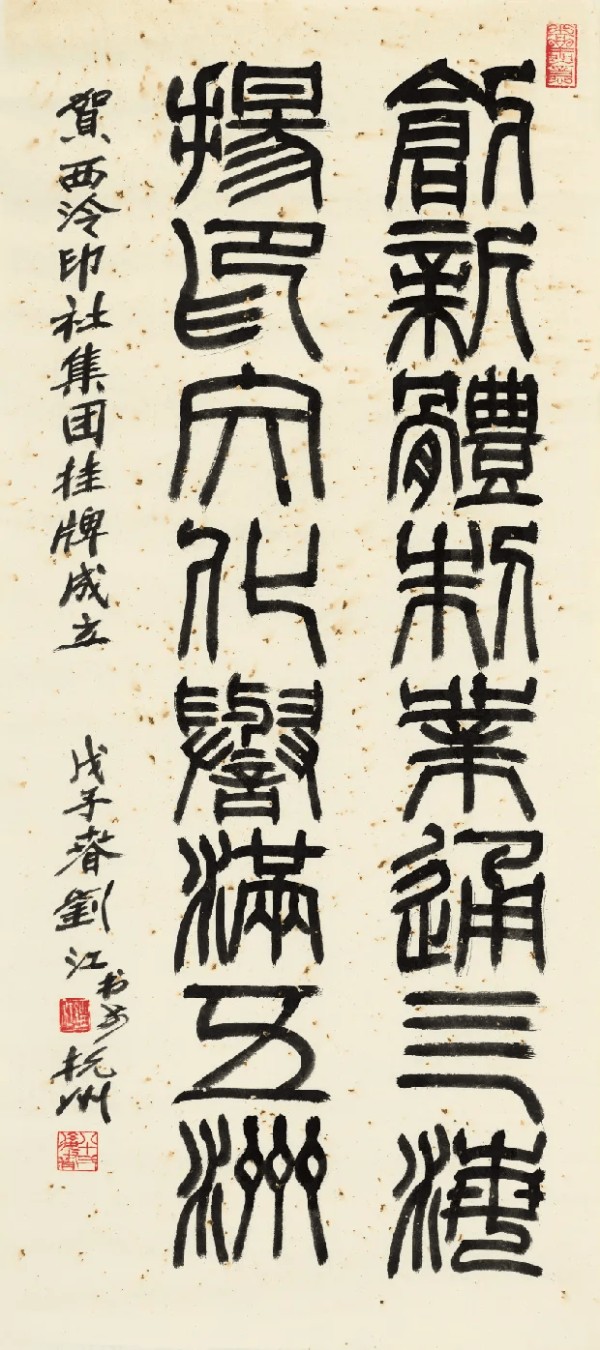 創新體制業通四海
揚印文化譽滿五洲
賀西泠印社集团挂牌成立
戊子春劉江书於杭州